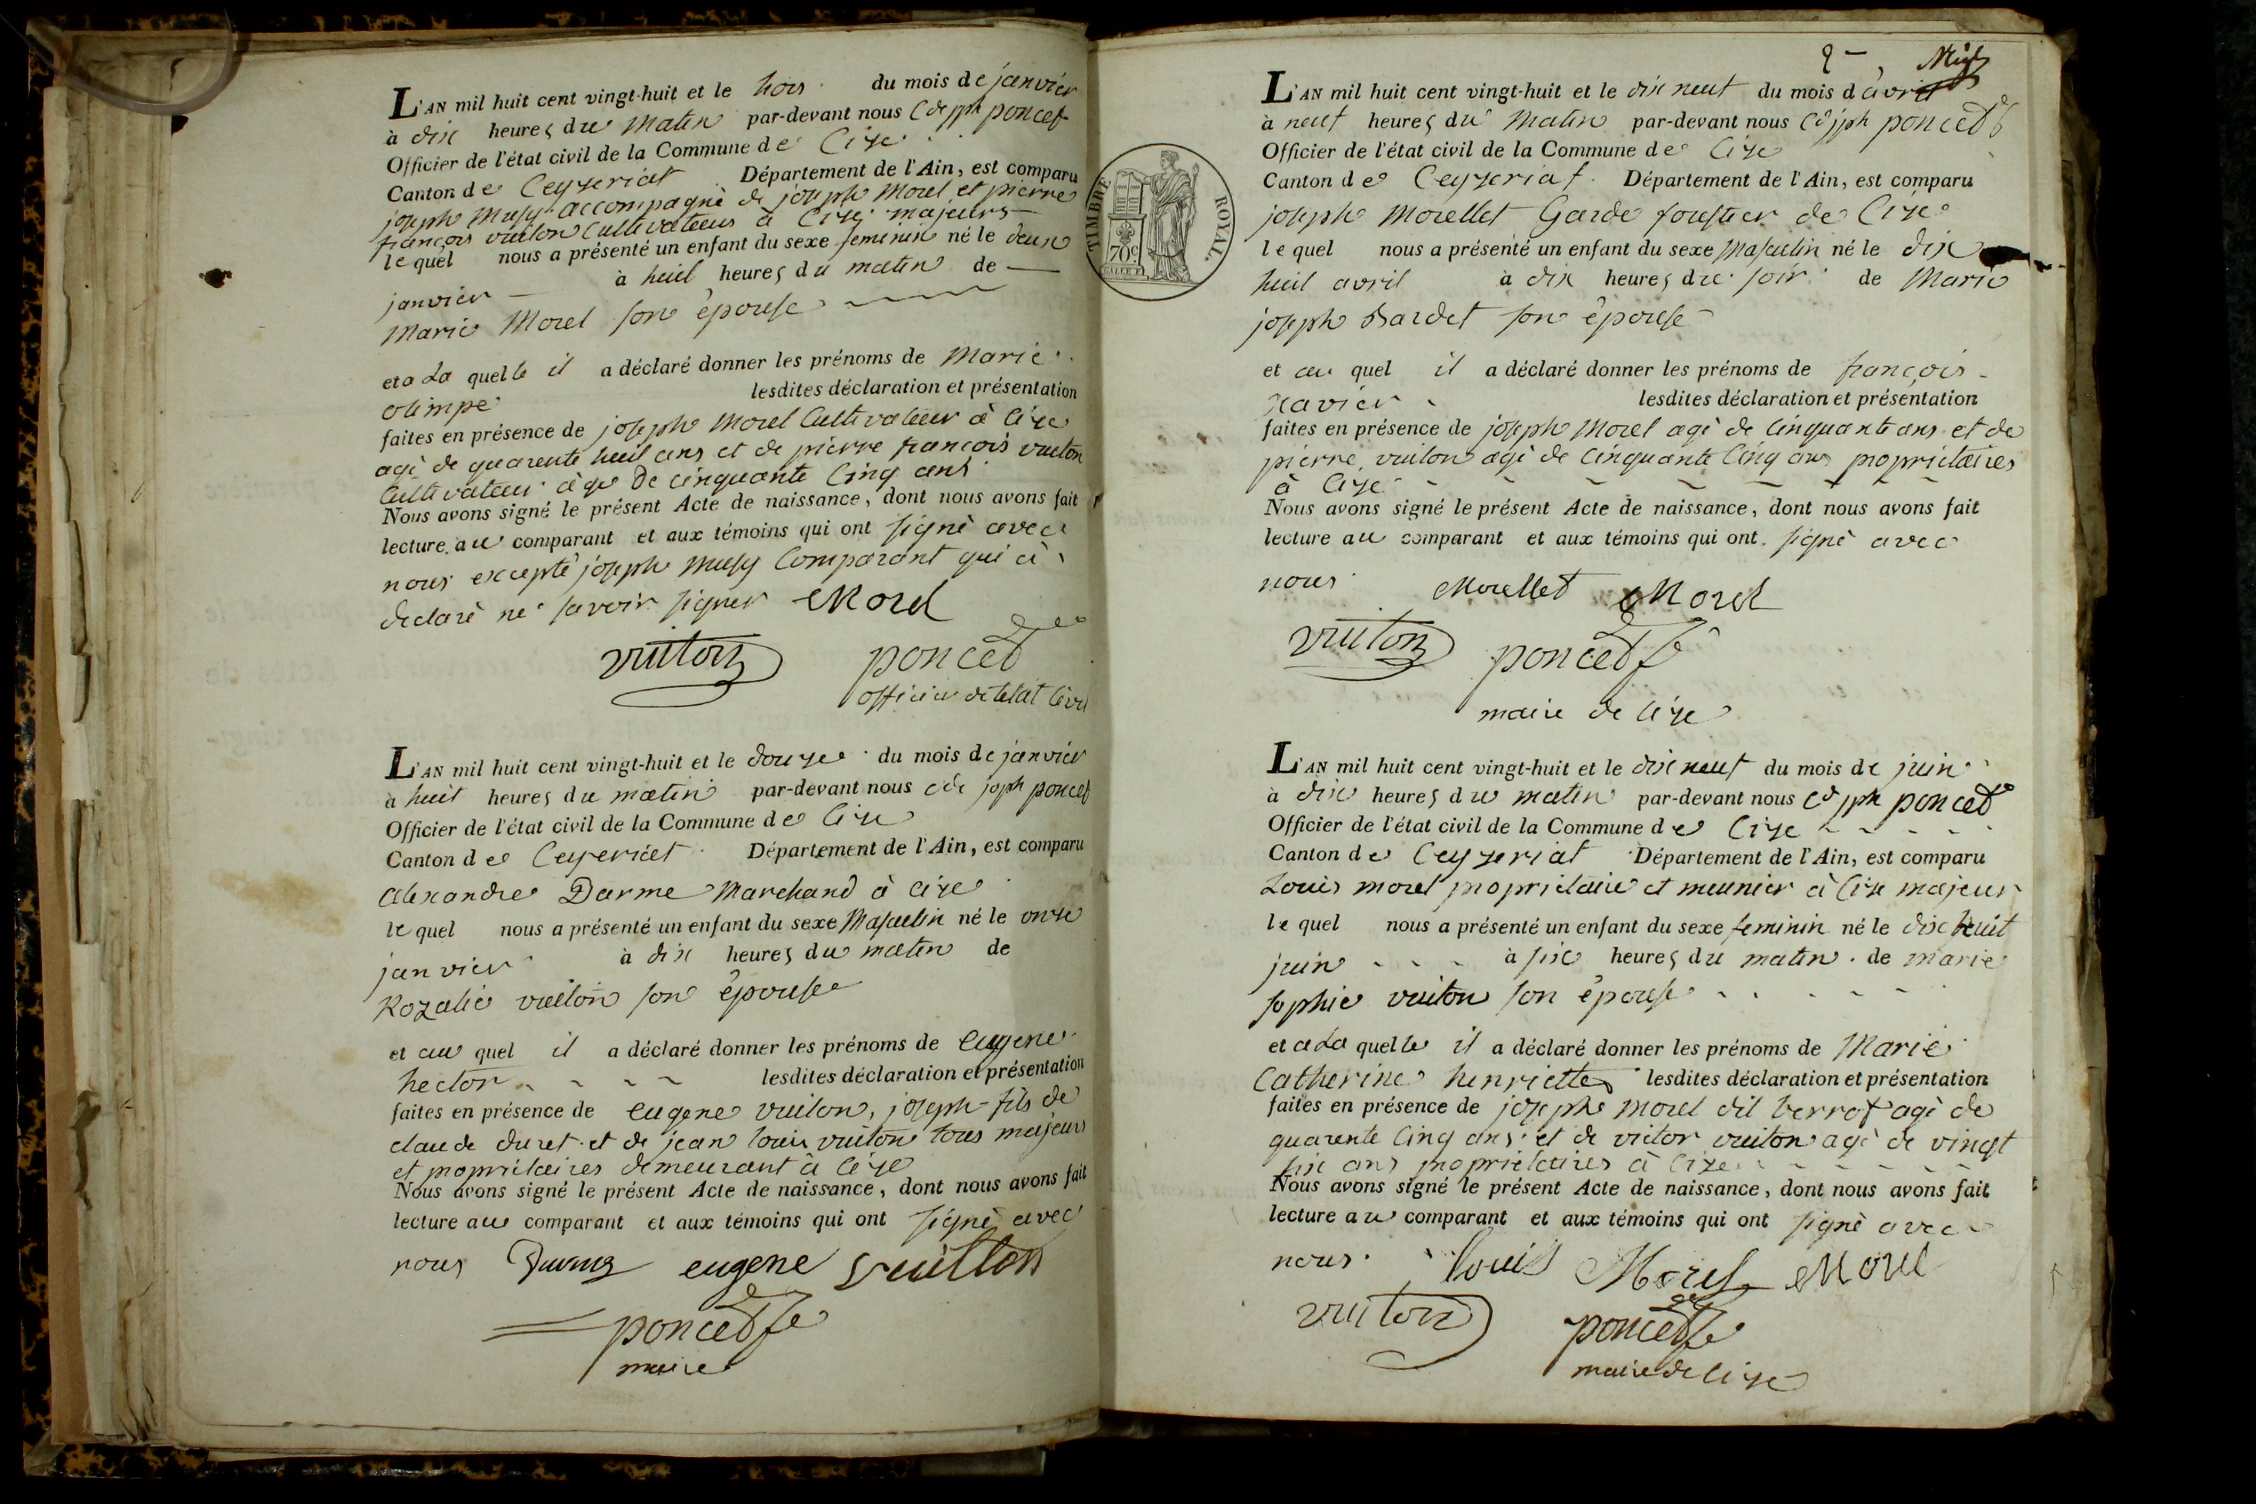 L'AN mil huit cent vingt-huit et le trois du mois de janvier
à dix heures du matin par-devant nous Cde jph poncet
Officier de l'état civil de la Commune de Cize
Canton de Ceyzeriat Département de l'Ain, est comparu
joseph Musy accompagné de joseph Morel et pierre
françois vuiton Cultivateurs à Cize majeurs
lequel nous a présenté un enfant du sexe feminin né le deux
janvier à huit heures du matin de
Marie Morel son épouse
et a La quelle il a déclaré donner les prénoms de Marie
olimpe lesdites déclaration et présentation
faites en présence de joseph Morel Cultivateur à Cize
agé de quarente huit ans et de pierre françois vuiton
Cultivateur agé De cinquante Cinq ans
Nous avons signé le présent Acte de naissance, dont nous avons fait
lecture au comparant et aux témoins qui ont signé avec
nous excepté joseph Musy Comparant qui à
declaré ne savoir signer Morel
vuiton poncet
officier de letat Civil
L'AN mil huit cent vingt-huit et le douze du mois de janvier
à huit heures du matin par-devant nous cde joph poncet
Officier de l'état civil de la Commune de Cize
Canton de Ceyzeriat Département de l'Ain, est comparu
alexandre Darme Marchand à Cize
le quel nous a présenté un enfant du sexe Masculin né le onze
janvier à dix heures du matin de
Rozalie vuiton son épouse
et au quel il a déclaré donner les prénoms de Eugene
hector lesdites déclaration et présentation
faites en présence de eugene vuiton, joseph fils de
claude duret et de jean louis vuiton tous majeurs
et propriétaires demeurant à Cize
Nous avons signé le présent Acte de naissance, dont nous avons fait
lecture au comparant et aux témoins qui ont signé avec
nous Darme eugene vuitton
poncet
maire
2
L'AN mil huit cent vingt-huit et le dix neuf du mois d'avril
à neuf heures du Matin par-devant nous Cde jph poncet
Officier de l'état civil de la Commune de Cize
Canton de Ceyzeriat Département de l'Ain, est comparu
joseph Morellet Garde forestier de Cize
le quel nous a présenté un enfant du sexe Masculin né le dix
huit avril à dix heures du soir de Marie
joseph Bardet son épouse
et au quel il a déclaré donner les prénoms de françois
xavier lesdites déclaration et présentation
faites en présence de joseph Morel agé de Cinquante ans et de
pierre vuiton agé de Cinquante Cinq ans propriétaires
à Cize
Nous avons signé le présent Acte de naissance, dont nous avons fait
lecture au comparant et aux témoins qui ont signé avec
nous Morellet Morel
vuiton poncet
maire de Cize
TIMBRE ROYAL
70c
L'AN mil huit cent vingt-huit et le dix neuf du mois de juin
à dix heures du matin par-devant nous Cde jph poncet
Officier de l'état civil de la Commune de Cize
Canton de Ceyzeriat Département de l'Ain, est comparu
Louis morel propriétaire et meunier à Cize majeur
le quel nous a présenté un enfant du sexe feminin né le dix huit
juin à six heures du matin de marie
sophie vuiton son épouse
et a La quelle il a déclaré donner les prénoms de Marie
Catherine henriette lesdites déclaration et présentation
faites en présence de joseph Morel dit berrot agé de
quarente Cinq ans et de victor vuiton agé de vingt
six ans propriétaires à Cize
Nous avons signé le présent Acte de naissance, dont nous avons fait
lecture au comparant et aux témoins qui ont signé avec
nous Louis Morel Morel
vuiton poncet
maire de Cize